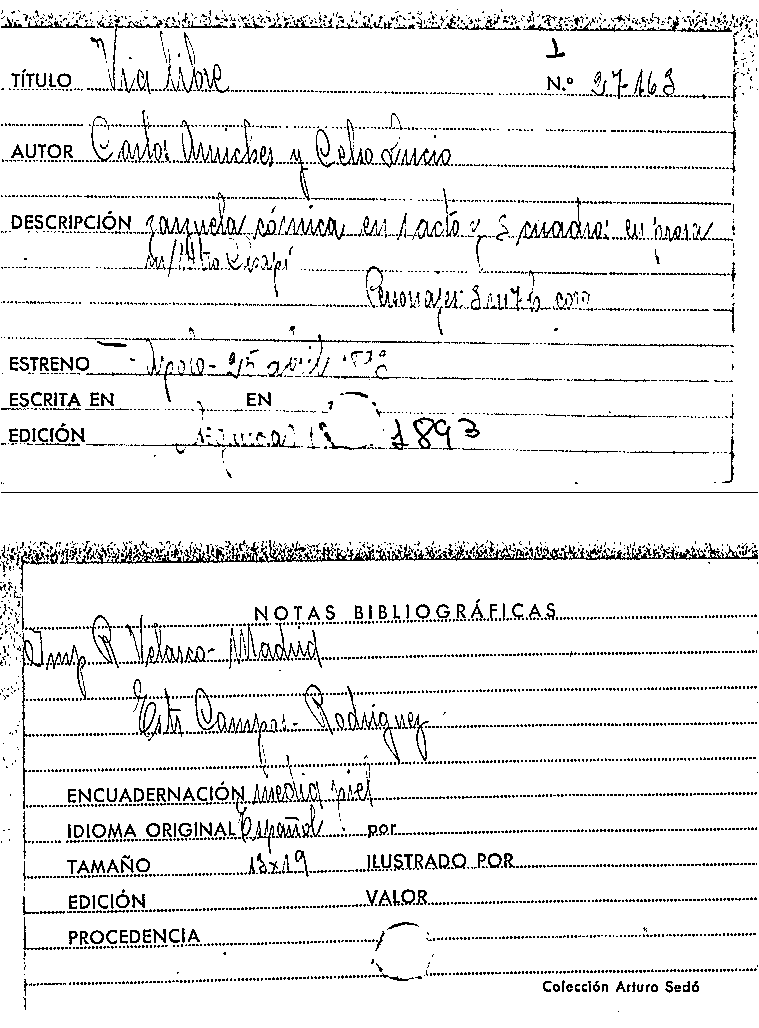 1
TÍTULO Via libre N.º 27-163
AUTOR Carlos Arniches y Celso Lucio
DESCRIPCIÓN zarzuela cómica en 1 acto y 3 cuadros en prosa
Personajes: 8 m 7 h coro
ESTRENO Apolo - 25 abril
ESCRITA EN EN
EDICIÓN 1893
NOTAS BIBLIOGRÁFICAS
Imp R Velasco - Madrid
Campos - Rodríguez
ENCUADERNACIÓN media piel
IDIOMA ORIGINAL Español por
TAMAÑO 13x19 ILUSTRADO POR
EDICIÓN VALOR
PROCEDENCIA
Colección Arturo Sedó